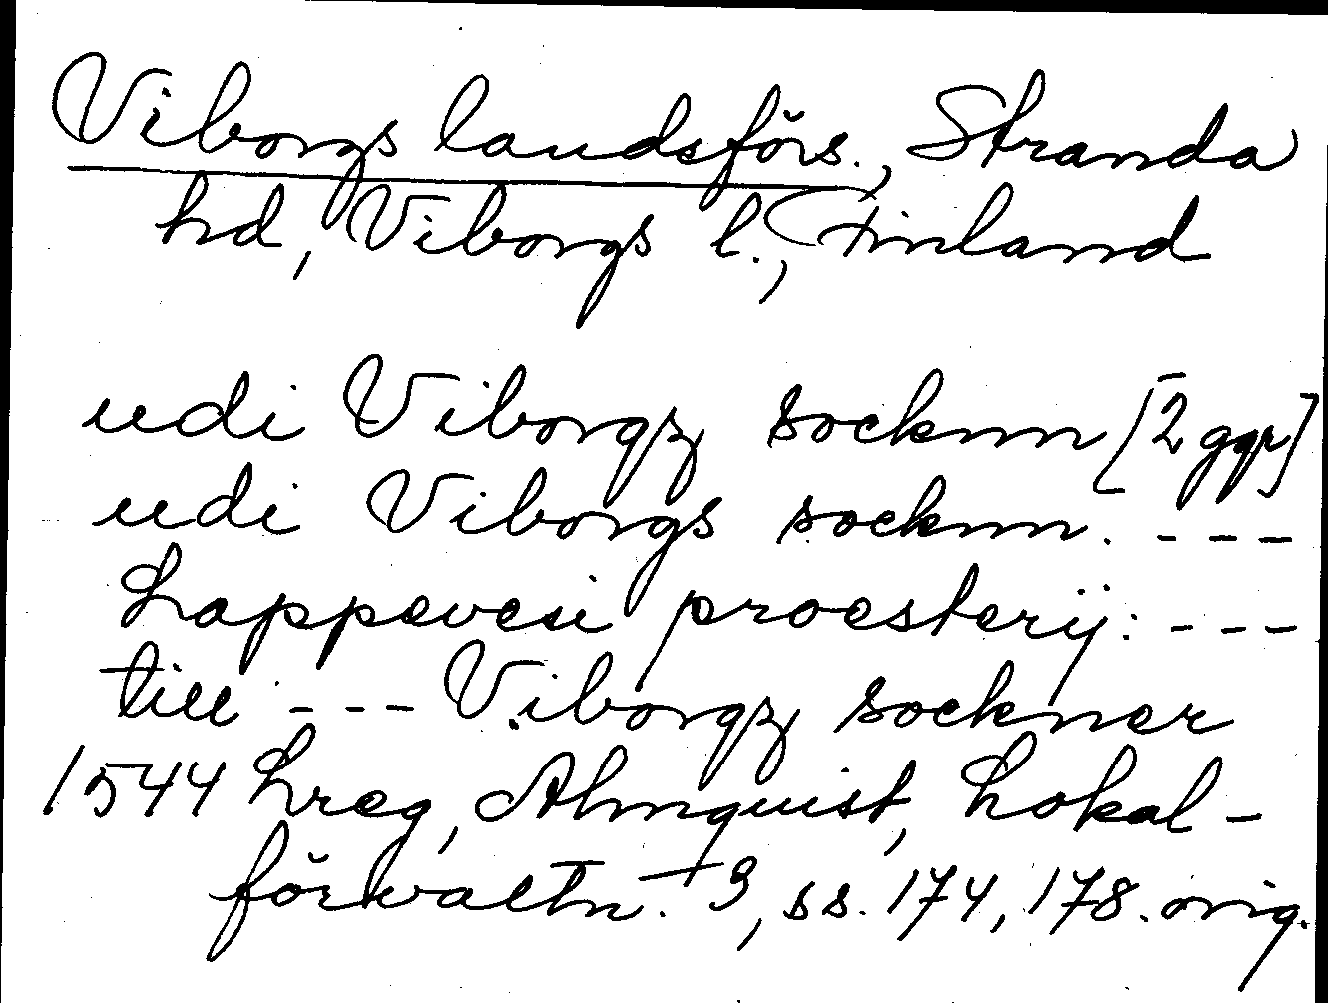 Viborgs landsförs., Stranda
hd, Viborgs l., Finland
udi Viborgz socknn [2 ggr]
udi Viborgs socknn. ---
Lappevesi proesterij: ---
till --- Viborgz sockner
1544 Lreg, Almquist, Lokal-
förvaltn. 3, ss. 174, 178. orig.